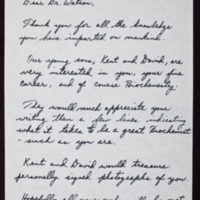 Dear Dr. Watson,
Thank you for all the knowledge
you have imparted on mankind.
Our young sons, Kent and David, are
very interested in you, your fine
career, and of course Biochemistry.
They would much appreciate your
writing them a few lines indicating
what it takes to be a great Biochemist
- such as you are.
Kent and David would treasure
personally signed photographs of you.
Hopefully all